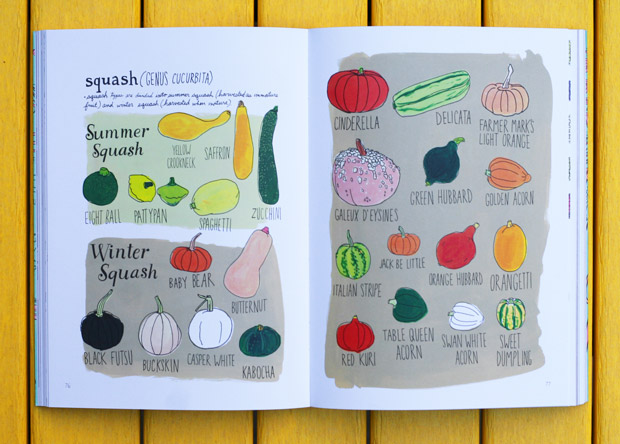 squash (GENUS CUCURBITA)
- squash types are divided into summer squash (harvested as immature
fruit) and winter squash (harvested when mature)
Summer
Squash
YELLOW
CROOKNECK
SAFFRON
EIGHT BALL
PATTYPAN
SPAGHETTI
ZUCCHINI
Winter
Squash
BABY BEAR
BUTTERNUT
BLACK FUTSU
BUCKSKIN
CASPER WHITE
KABOCHA
76
CINDERELLA
DELICATA
FARMER MARK'S
LIGHT ORANGE
GALEUX D'EYSINES
GREEN HUBBARD
GOLDEN ACORN
ITALIAN STRIPE
JACK BE LITTLE
ORANGE HUBBARD
ORANGETTI
RED KURI
TABLE QUEEN
ACORN
SWAN WHITE
ACORN
SWEET
DUMPLING
77